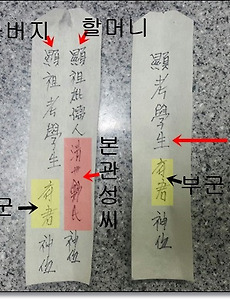 버지
할머니
顯祖考學生府君神位
顯祖妣孺人清州韓氏神位
顯考學生府君神位
본관성씨
군
부군